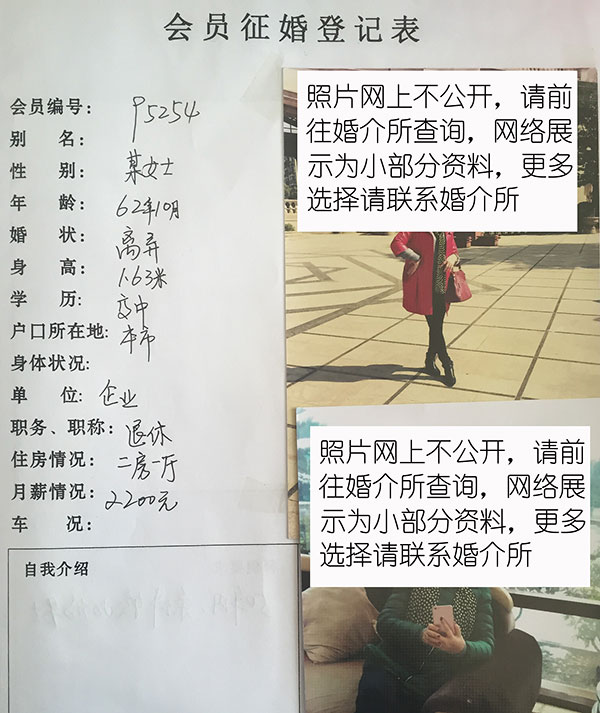 会员征婚登记表
会员编号: P5254
别 名:
性 别: 某女士
年 龄: 62年10月
婚 状: 离异
身 高: 1.63米
学 历: 高中
户口所在地: 本市
身体状况:
单 位: 企业
职务、职称: 退休
住房情况: 二房一厅
月薪情况: 2200元
车 况:
自我介绍
照片网上不公开，请前
往婚介所查询，网络展
示为小部分资料，更多
选择请联系婚介所
照片网上不公开，请前
往婚介所查询，网络展
示为小部分资料，更多
选择请联系婚介所